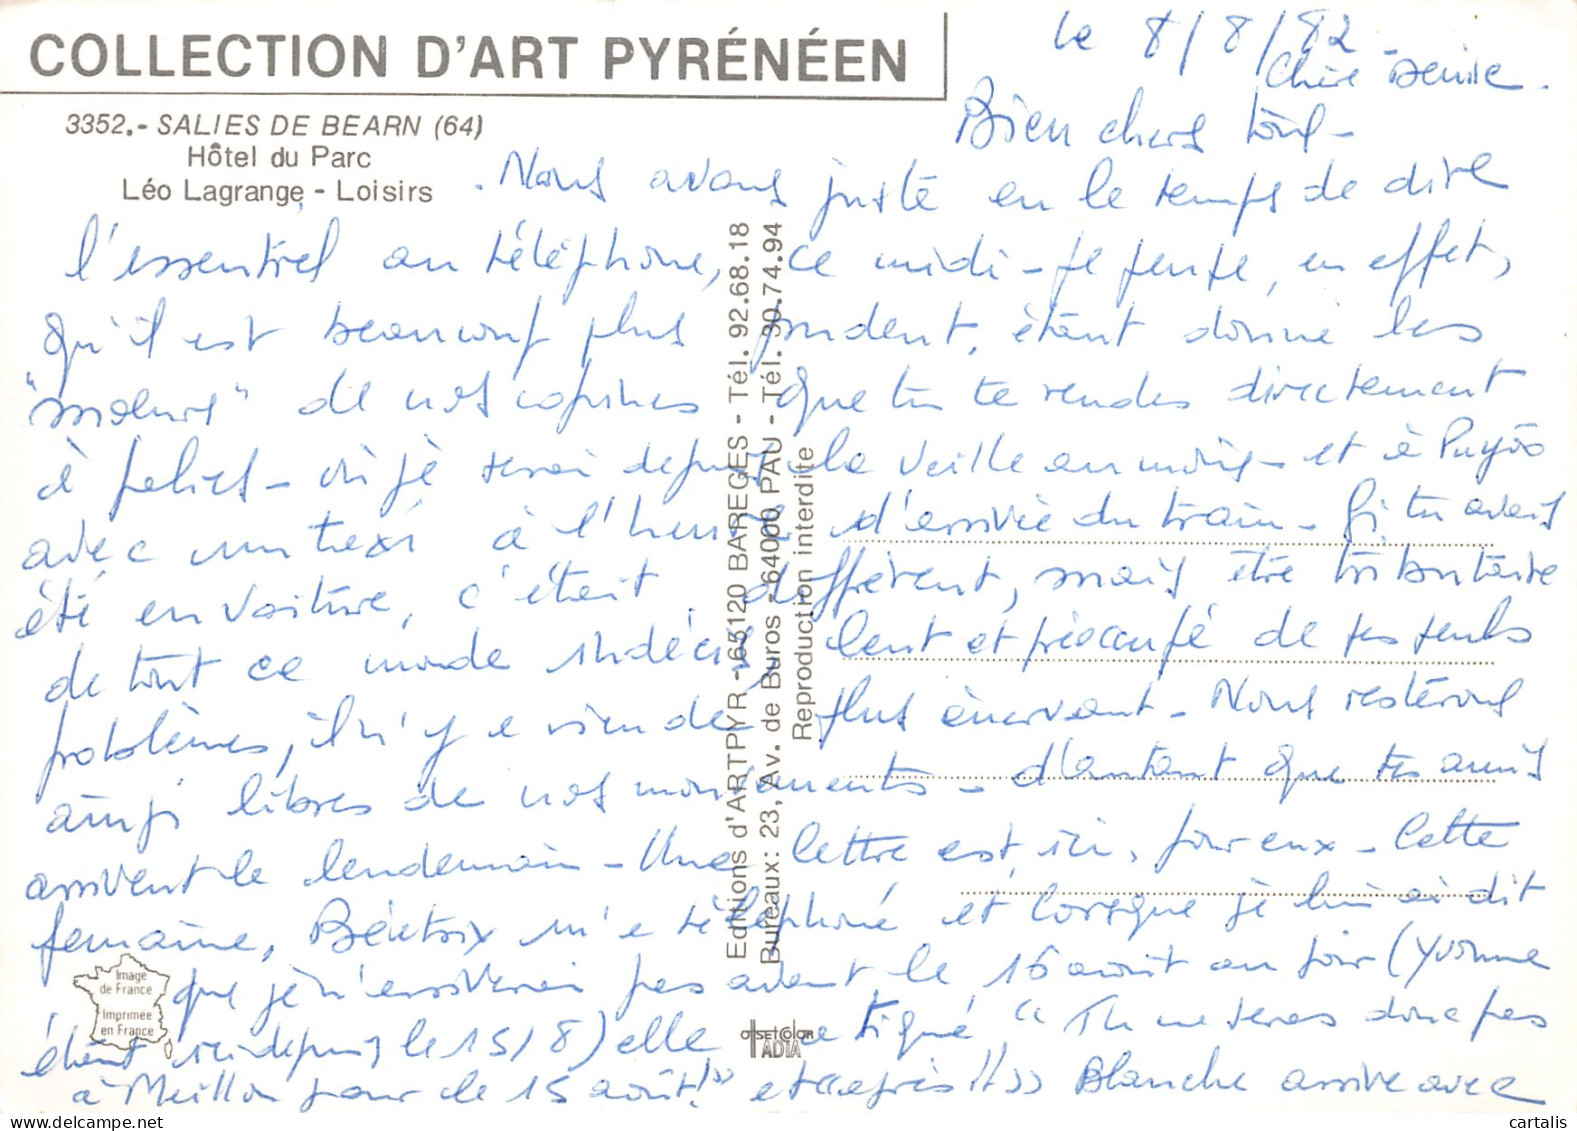 COLLECTION D'ART PYRÉNÉEN
3352.- SALIES DE BEARN (64)
Hôtel du Parc
Léo Lagrange - Loisirs
le 8/8/82
Chère Denise.
Bien chers tous -
. Nous avons juste eu le temps de dire
l'essentiel au téléphone, ce midi - Je pense, en effet,
qu'il est beaucoup plus prudent, étant donné les
"moeurs" de nos copines que tu te rendes directement
à Salies - où je serai depuis la veille au moins - et à Puyôo
avec un taxi à l'heure d'arrivée du train - Si tu avais
été en voiture, c'était différent, mais être tributaire
de tout ce monde indécis, lent et préoccupé de ses seuls
problèmes, il n'y a rien de plus énervant - Nous resterons
ainsi libres de nos mouvements - d'autant que tes amis
arrivent le lendemain - Une lettre est, ici, pour eux - Cette
semaine, Béatrix m'a téléphoné et lorsque je lui ai dit
que je n'arriverai pas avant le 16 août au soir (Yvonne
étant ici depuis le 15/8) elle a tiqué "Tu ne seras donc pas
à Meillon pour le 15 août!" et "après"!! Blanche arrive avec
Editions d'ARTPYR - 65120 BAREGES - Tél. 92.68.18
Bureaux: 23, Av. de Buros - 64000 PAU - Tél. 30.74.94
Reproduction interdite
Image
de France
Imprimée
en France
OFFSET COLOR
ADIA
cartalis